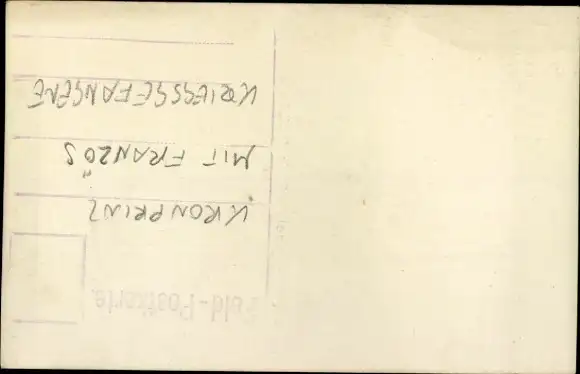 Feld-Postkarte.
KRONPRINZ
MIT FRANZÖS
KRIEGSGEFANGENE